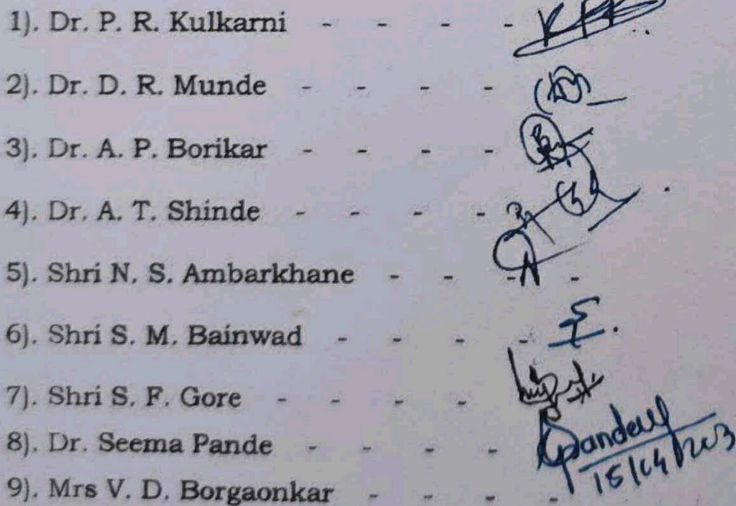 1). Dr. P. R. Kulkarni - - - -
2). Dr. D. R. Munde - - - -
3). Dr. A. P. Borikar - - - -
4). Dr. A. T. Shinde - - - -
5). Shri N. S. Ambarkhane - - - -
6). Shri S. M. Bainwad - - - -
7). Shri S. F. Gore - - - -
8). Dr. Seema Pande - - - - Pande
9). Mrs V. D. Borgaonkar - - - -